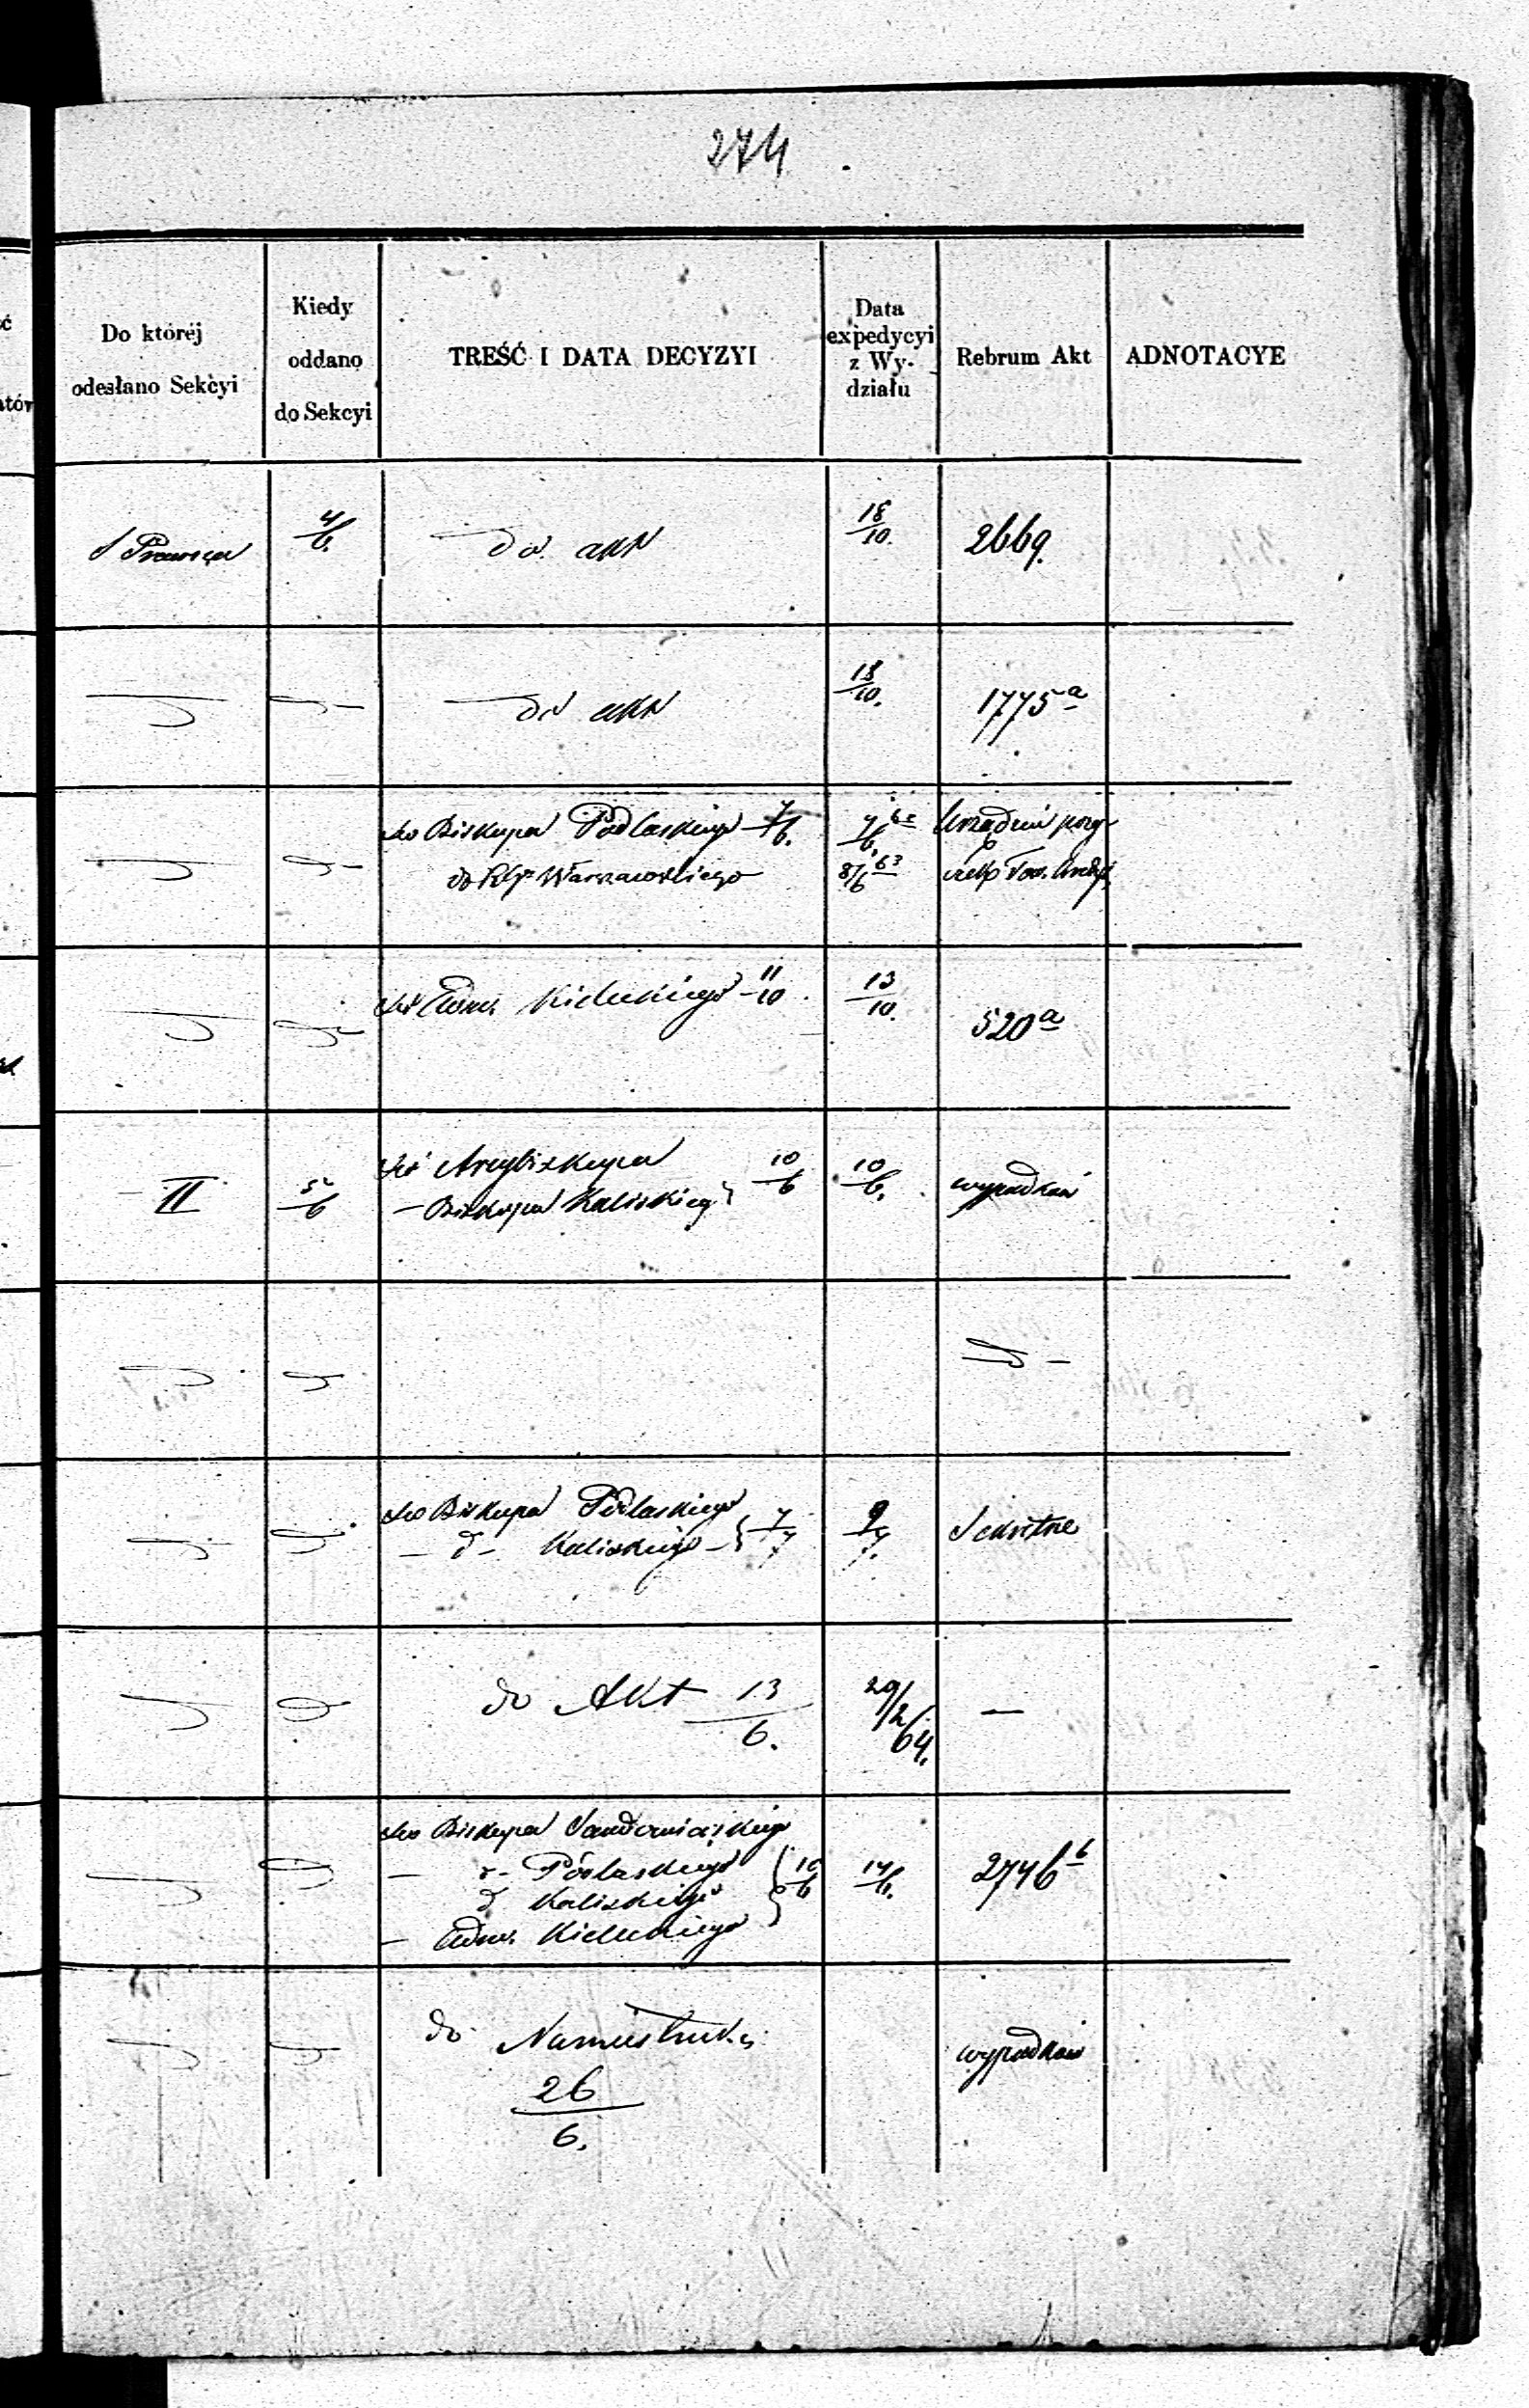 274
Do któréj odesłano Sekcyi
Kiedy oddano do Sekcyi
TREŚĆ I DATA DECYZYI
Data expedycyi z Wy-działu
Rebrum Akt
ADNOTACYE
4/6.
do akt
18/10.
2669.
do akt
18/10.
1775 a
do Biskupa Podlaskiego 7/6.
7/6
do Warszawskiego
8/6 63
do Adm. Kieleckiego 11/10.
13/10.
520 a
II
5/6
do Arcybiskupa
- Biskupa Kaliskieg 10/6
10/6.
wypadków
do Biskupa Podlaskiego
- d - Kaliskiego - 7/7
9/7.
Sekretne
do Akt 13/6.
29/2 64.
—
do Biskupa Sandomierskiego
- d - Podlaskiego
d Kaliskiego 10/6
14/6.
2746 b
- Adm. Kieleckiego
do Namiestnika
26/6.
wypadków